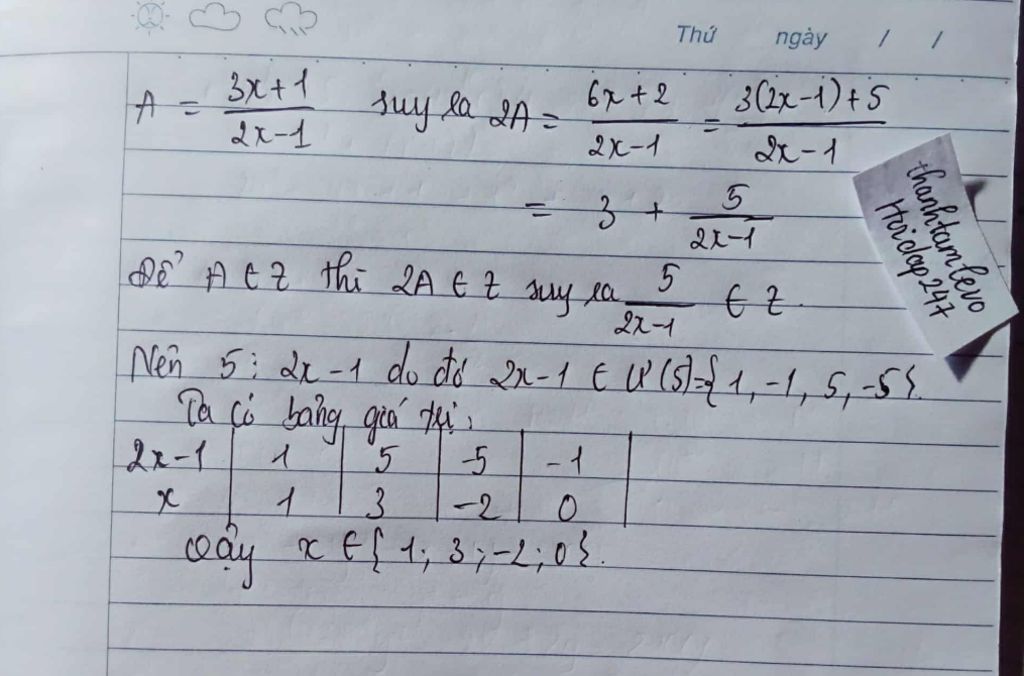 Thứ ngày / /
A = \frac{3x+1}{2x-1} suy ra 2A = \frac{6x+2}{2x-1} = \frac{3(2x-1)+5}{2x-1}
= 3 + \frac{5}{2x-1}
thanhtamlevo
Hoidap247
Để A ∈ Z thì 2A ∈ Z suy ra \frac{5}{2x-1} ∈ Z.
Nên 5 ⋮ 2x-1 do đó 2x-1 ∈ Ư(5)={1,-1,5,-5}.
Ta có bảng giá trị:
2x-1 1 5 -5 -1
x 1 3 -2 0
Vậy x ∈ {1; 3; -2; 0}.